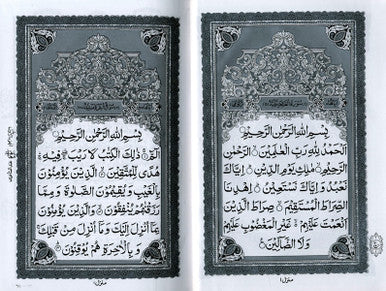 بِسْمِ اللّٰهِ الرَّحْمٰنِ الرَّحِيْمِ
اَلْحَمْدُ لِلّٰهِ رَبِّ الْعٰلَمِيْنَ ۙ الرَّحْمٰنِ
الرَّحِيْمِ ۙ مٰلِكِ يَوْمِ الدِّيْنِ ؕ اِيَّاكَ
نَعْبُدُ وَ اِيَّاكَ نَسْتَعِيْنُ ؕ اِهْدِنَا
الصِّرَاطَ الْمُسْتَقِيْمَ ۙ صِرَاطَ الَّذِيْنَ
اَنْعَمْتَ عَلَيْهِمْ ۙ غَيْرِ الْمَغْضُوْبِ عَلَيْهِمْ
وَ لَا الضَّآلِّيْنَ
منزل ١
بِسْمِ اللّٰهِ الرَّحْمٰنِ الرَّحِيْمِ
الٓمّٓ ۚ ذٰلِكَ الْكِتٰبُ لَا رَيْبَ ۛ فِيْهِ ۛ
هُدًى لِّلْمُتَّقِيْنَ ۙ الَّذِيْنَ يُؤْمِنُوْنَ
بِالْغَيْبِ وَ يُقِيْمُوْنَ الصَّلٰوةَ وَ مِمَّا
رَزَقْنٰهُمْ يُنْفِقُوْنَ ۙ وَ الَّذِيْنَ يُؤْمِنُوْنَ
بِمَآ اُنْزِلَ اِلَيْكَ وَ مَآ اُنْزِلَ مِنْ قَبْلِكَ ۚ
وَ بِالْاٰخِرَةِ هُمْ يُوْقِنُوْنَ
منزل ١